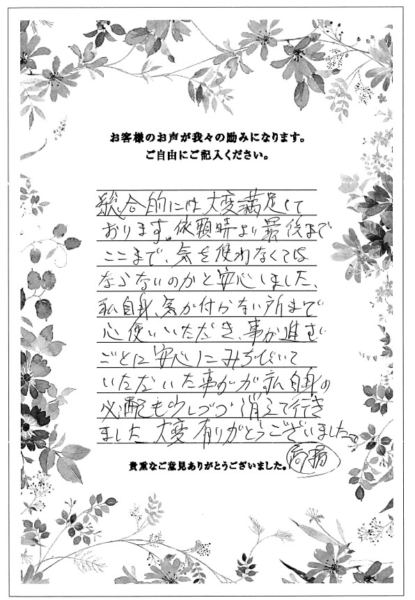 お客様のお声が我々の励みになります。
ご自由にご記入ください。
総合的には大変満足して
おります。依頼時より最後まで
ここまで、気を使わなくては
ならないのかと安心しました、
私自身、気が付かない所まで
心使いいただき、事が進む
ごとに安心にみちびいて
いただいた事がが私自身の
心配も少しづつ消えて行き
ました 大変有りがとうございました。
貴重なご意見ありがとうございました。